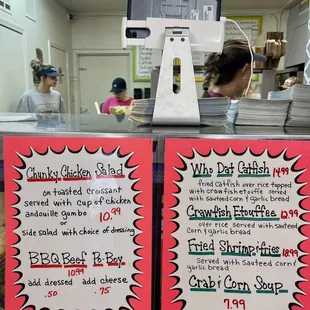 Chunky Chicken Salad
on toasted croissant
served with cup of chicken
andouille gumbo
or 10.99
side salad with choice of dressing
BBQ Beef Po Boy
10.99
add dressed add cheese
.50 .75
Who Dat Catfish 14.99
fried catfish over rice topped
with crawfish etouffee served with
sauteed corn & garlic bread
Crawfish Etouffee 12.99
over rice served with sauteed
corn & garlic bread
Fried Shrimp/fries 18.99
served with sauteed corn &
garlic bread
Crab & Corn Soup
7.99